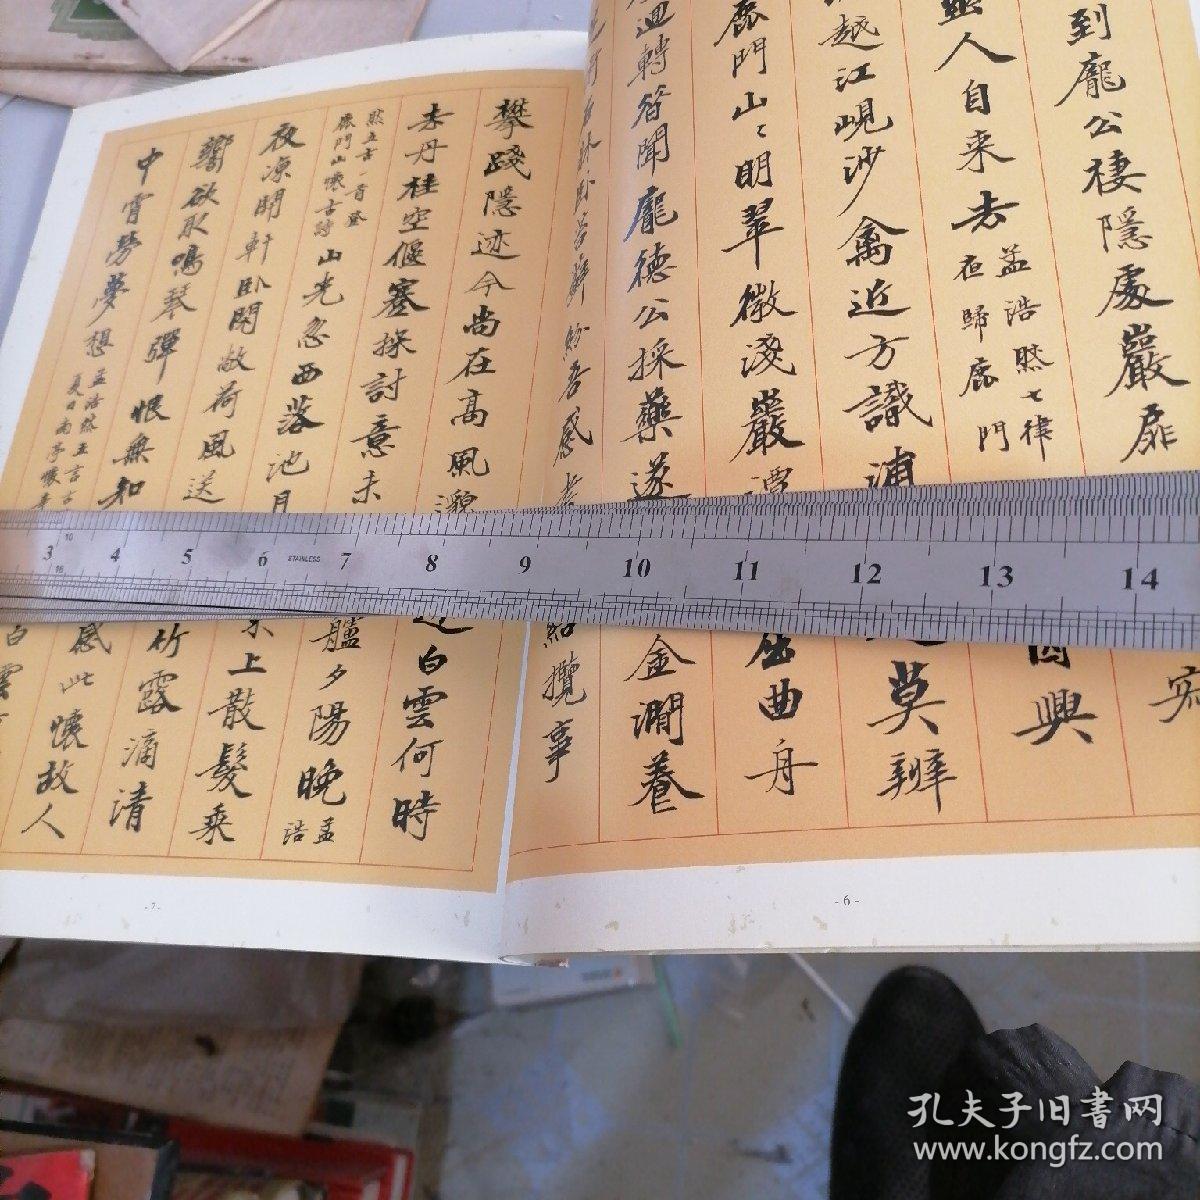 到龐公棲隱處巖扉
人自来去孟浩然七律
夜歸鹿門
越江峴沙禽近方識浦
興
莫辨
鹿門山〻明翠微淺巖潭
屈曲舟
迴轉智聞龐德公採藥遂
金澗養
紛吾感
紹攬事
攀踐隱迹今尚在高風邈
白雲何時
去丹桂空偃蹇探討意未
艫夕陽晚孟
浩
然五古一首登
鹿門山懷古詩山光忽西落池月
上散髮乘
夜凉開軒卧閑敞荷風送
竹露滴清
響欲取鳴琴彈恨無知
感此懷故人
中宵勞夢想孟浩然五言古
夏日南亭懷辛
白雲
3 4 5 6 7 8 9 10 11 12 13 14
STAINLESS
10
16
-7-
-6-
孔夫子旧书网
www.kongfz.com